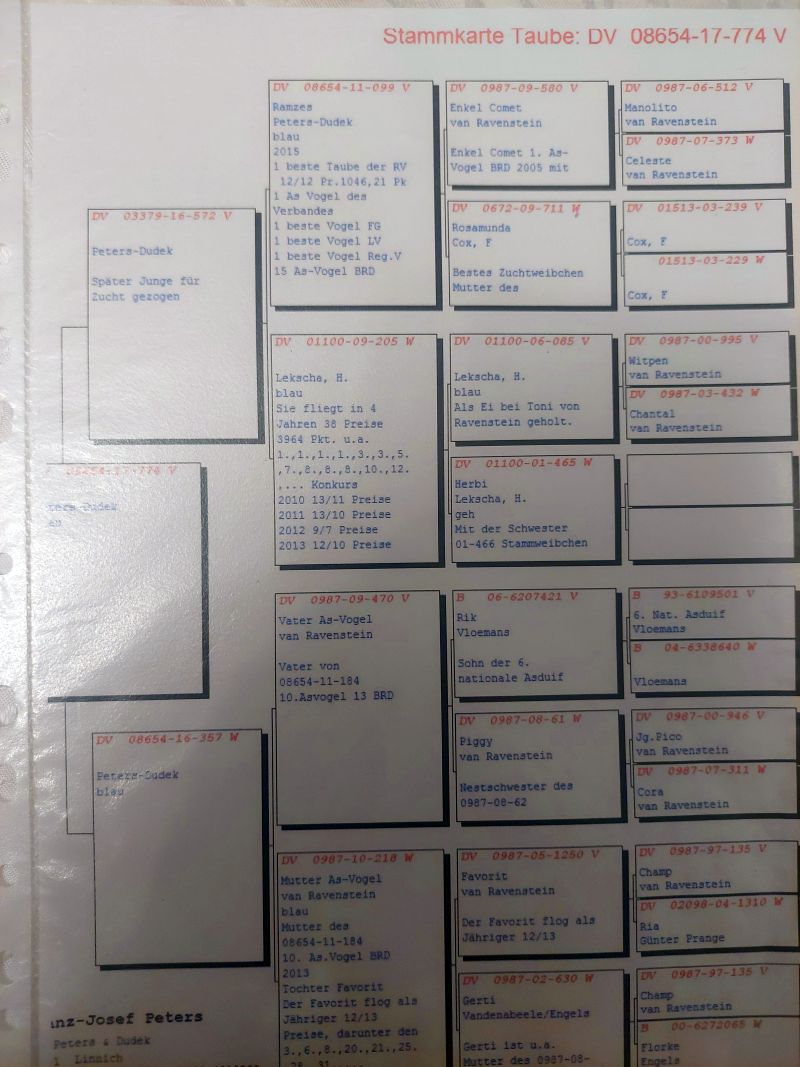 Stammkarte Taube: DV 08654-17-774 V
DV 03379-16-572 V
Peters-Dudek
Später Junge für
Zucht gezogen
08654-17-774 V
Dudek
DV 08654-16-357 W
Peters-Dudek
blau
DV 08654-11-099 V
Ramzes
Peters-Dudek
blau
2015
1 beste Taube der RV
12/12 Pr.1046,21 Pk
1 As Vogel des
Verbandes
1 beste Vogel FG
1 beste Vogel LV
1 beste Vogel Reg.V
15 As-Vogel BRD
DV 01100-09-205 W
Lekscha, H.
blau
Sie fliegt in 4
Jahren 38 Preise
3964 Pkt. u.a.
1.,1.,1.,1.,3.,3.,5.
,7.,8.,8.,8.,10.,12.
,... Konkurs
2010 13/11 Preise
2011 13/10 Preise
2012 9/7 Preise
2013 12/10 Preise
DV 0987-09-470 V
Vater As-Vogel
van Ravenstein
Vater von
08654-11-184
10.Asvogel 13 BRD
DV 0987-10-218 W
Mutter As-Vogel
van Ravenstein
blau
Mutter des
08654-11-184
10. As.Vogel BRD
2013
Tochter Favorit
Der Favorit flog als
Jähriger 12/13
Preise, darunter den
3.,6.,8.,20.,21.,25.
DV 0987-09-580 V
Enkel Comet
van Ravenstein
Enkel Comet 1. As-
Vogel BRD 2005 mit
DV 0672-09-711 W
Rosamunda
Cox, F
Bestes Zuchtweibchen
Mutter des
DV 01100-06-085 V
Lekscha, H.
blau
Als Ei bei Toni von
Ravenstein geholt.
DV 01100-01-465 W
Herbi
Lekscha, H.
geh
Mit der Schwester
01-466 Stammweibchen
B 06-6207421 V
Rik
Vloemans
Sohn der 6.
nationale Asduif
DV 0987-08-61 W
Piggy
van Ravenstein
Nestschwester des
0987-08-62
DV 0987-05-1250 V
Favorit
van Ravenstein
Der Favorit flog als
Jähriger 12/13
DV 0987-02-630 W
Gerti
Vandenabeele/Engels
Gerti ist u.a.
Mutter des 0987-08-
DV 0987-06-512 V
Manolito
van Ravenstein
DV 0987-07-373 W
Celeste
van Ravenstein
DV 01513-03-239 V
Cox, F
01513-03-229 W
Cox, F
DV 0987-00-995 V
Witpen
van Ravenstein
DV 0987-03-432 W
Chantal
van Ravenstein
B 93-6109501 V
6. Nat. Asduif
Vloemans
B 04-6338640 W
Vloemans
DV 0987-00-946 V
Jg.Pico
van Ravenstein
DV 0987-07-311 W
Cora
van Ravenstein
DV 0987-97-135 V
Champ
van Ravenstein
DV 02098-04-1310 W
Ria
Günter Prange
DV 0987-97-135 V
Champ
van Ravenstein
B 00-6272065 W
Florke
Engels
nz-Josef Peters
Peters & Dudek
Linnich